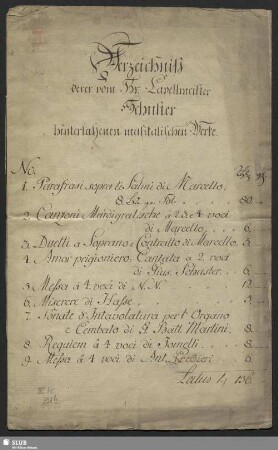 Verzeichniß
derer vom Hr. Capellmeister
Schuster
hinterlaßenen musikalischen Werke.
No.
1. Parafrasi sopra li Salmi di Marcello.
8. Bde. Fol. . . . 80
2. Canzoni Madrigalesche à 2. 3. 4 voci
di Marcello . . 6.
3. Duetti a Soprano e Contralto di Marcello 5.
4. Amor prigioniero, Cantata a 2. voci
di Gius. Schuster . . . 6.
5. Messa à 4. voci di N. N. . . . 12
6. Miserere di Hasse . . . 5.
7. Sonate d'Intavolatura per l'Organo
e Cembalo di G. Batt. Martini. 8
8. Requiem à 4 voci di Jomelli . . . 8
9. Messa à 4 voci di Ant. 6
Latus 136